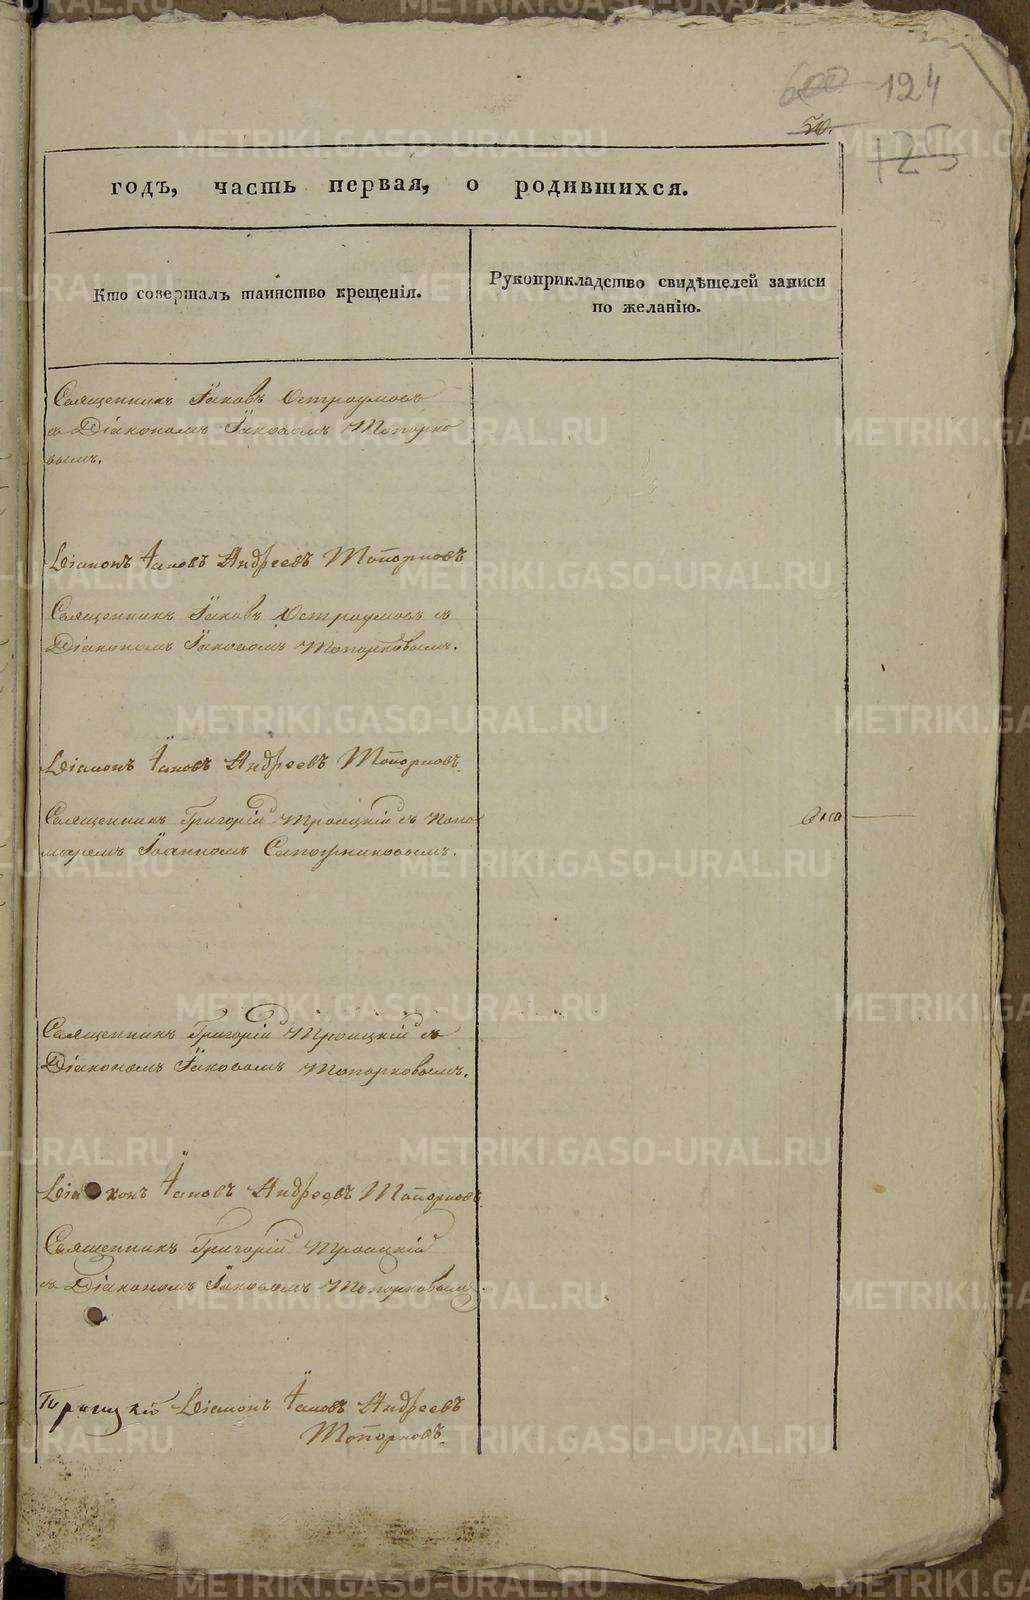 600 124
50.
125
годъ, часть первая, о родившихся.
Кто совершалъ таинство крещенія.
Рукоприкладство свидѣтелей записи
по желанію.
Священникъ Іаковъ Остроумовъ
съ Діакономъ Іаковомъ Топорко
вымъ.
Діаконъ Іаковъ Андреевъ Топорковъ
Священникъ Іаковъ Остроумовъ съ
Діакономъ Іаковомъ Топорковымъ.
Діаконъ Іаковъ Андреевъ Топорковъ.
Священникъ Григорій Троицкій съ Поно
маремъ Іоанномъ Сапожниковымъ.
Священникъ Григорій Троицкій съ
Діакономъ Іаковомъ Топорковымъ.
Діаконъ Іаковъ Андреевъ Топорковъ.
Священникъ Григорій Троицкій
съ Діакономъ Іаковомъ Топорковымъ.
Троицкій Діаконъ Іаковъ Андреевъ
Топорковъ.
METRIKI.GASO-URAL.RU